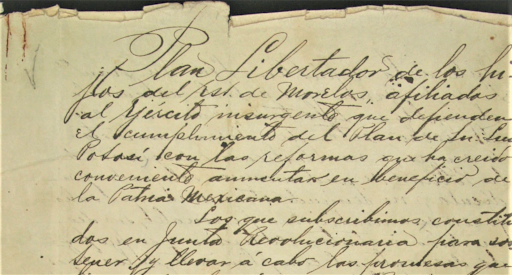 Plan Libertador de los hi-
jos del Est. de Morelos, afiliados
al Ejército insurgente que defienden
el cumplimiento del Plan de Sn Luis
Potosí, con las reformas que ha creido
conveniente aumentar en beneficio de
la Patria Mexicana.
Los que subscribimos, constitui-
dos en Junta Revolucionaria para sos-
tener y llevar á cabo las promesas que